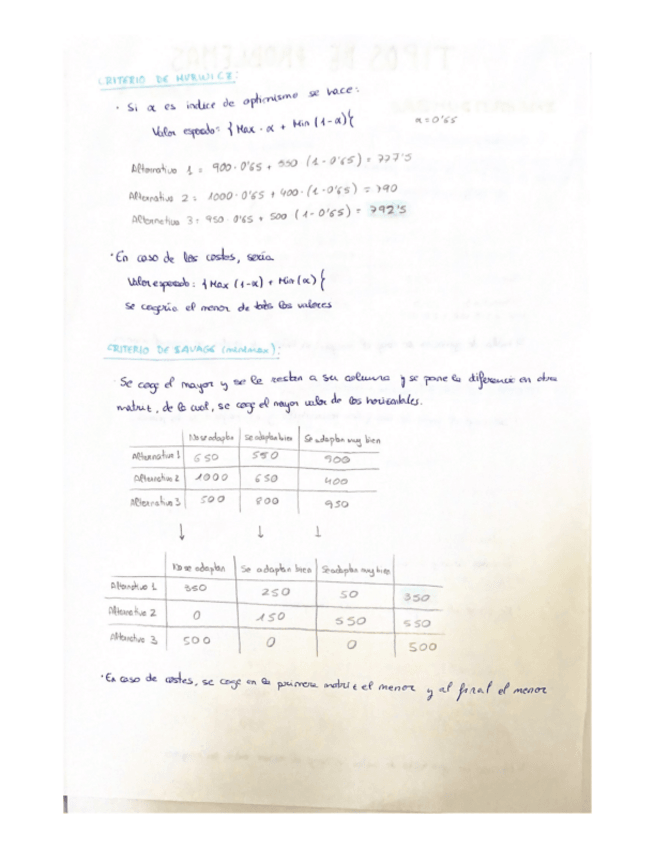 CRITERIO DE HURWICZ:
· Si α es indice de optimismo se hace:
Valor esperado: { Max · α + Min (1-α) {
α = 0'65
Alternativa 1 = 900 · 0'65 + 550 (1 - 0'65) = 777'5
Alternativa 2 = 1000 · 0'65 + 400 · (1 - 0'65) = 790
Alternativa 3 = 950 · 0'65 + 500 (1 - 0'65) = 792'5
· En caso de los costes, sería
Valor esperado: { Max (1-α) + Min (α) {
Se cogería el menor de todos los valores
CRITERIO DE SAVAGE (minimax):
· Se coge el mayor y se le restan a su columna y se pone la diferencia en otra
matriz, de la cual, se coge el mayor valor de las horizontales.
No se adaptan Se adaptan bien Se adaptan muy bien
Alternativa 1 650 550 900
Alternativa 2 1000 650 400
Alternativa 3 500 800 950
↓ ↓ ↓
No se adaptan Se adaptan bien Se adaptan muy bien
Alternativa 1 350 250 50 350
Alternativa 2 0 150 550 550
Alternativa 3 500 0 0 500
· En caso de costes, se coge en la primera matriz el menor y al final el menor